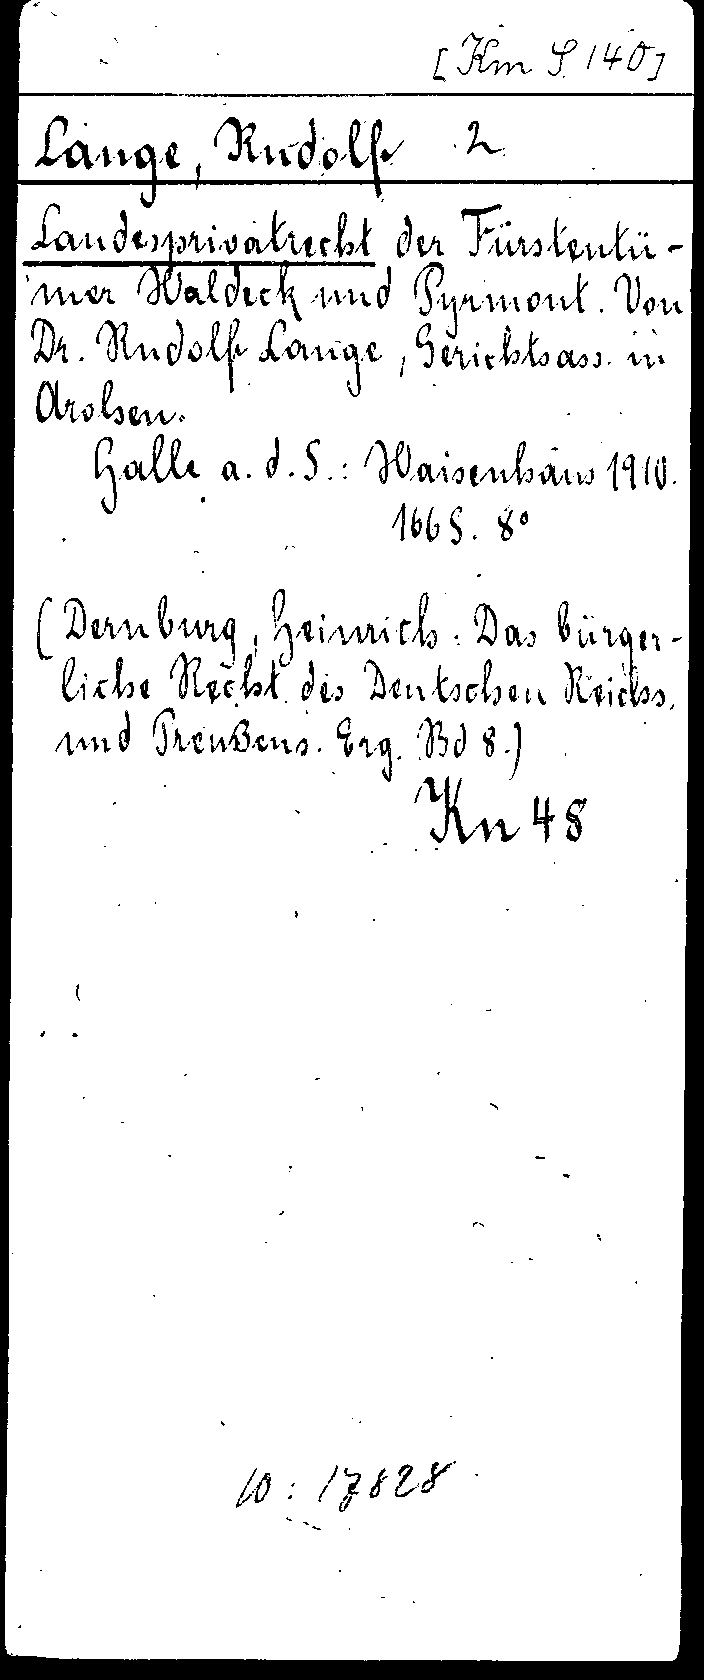 [Km S 140]
Lange, Rudolf 2
Landesprivatrecht der Fürstentü-
mer Waldeck und Pyrmont. Von
Dr. Rudolf Lange, Gerichtsass. in
Arolsen.
Halle a. d. S.: Waisenhaus 1910.
166 S. 8°
(Dernburg, Heinrich: Das bürger-
liche Recht des Deutschen Reichs
und Preußens. Erg. Bd 8.)
Kn 48
10: 17828